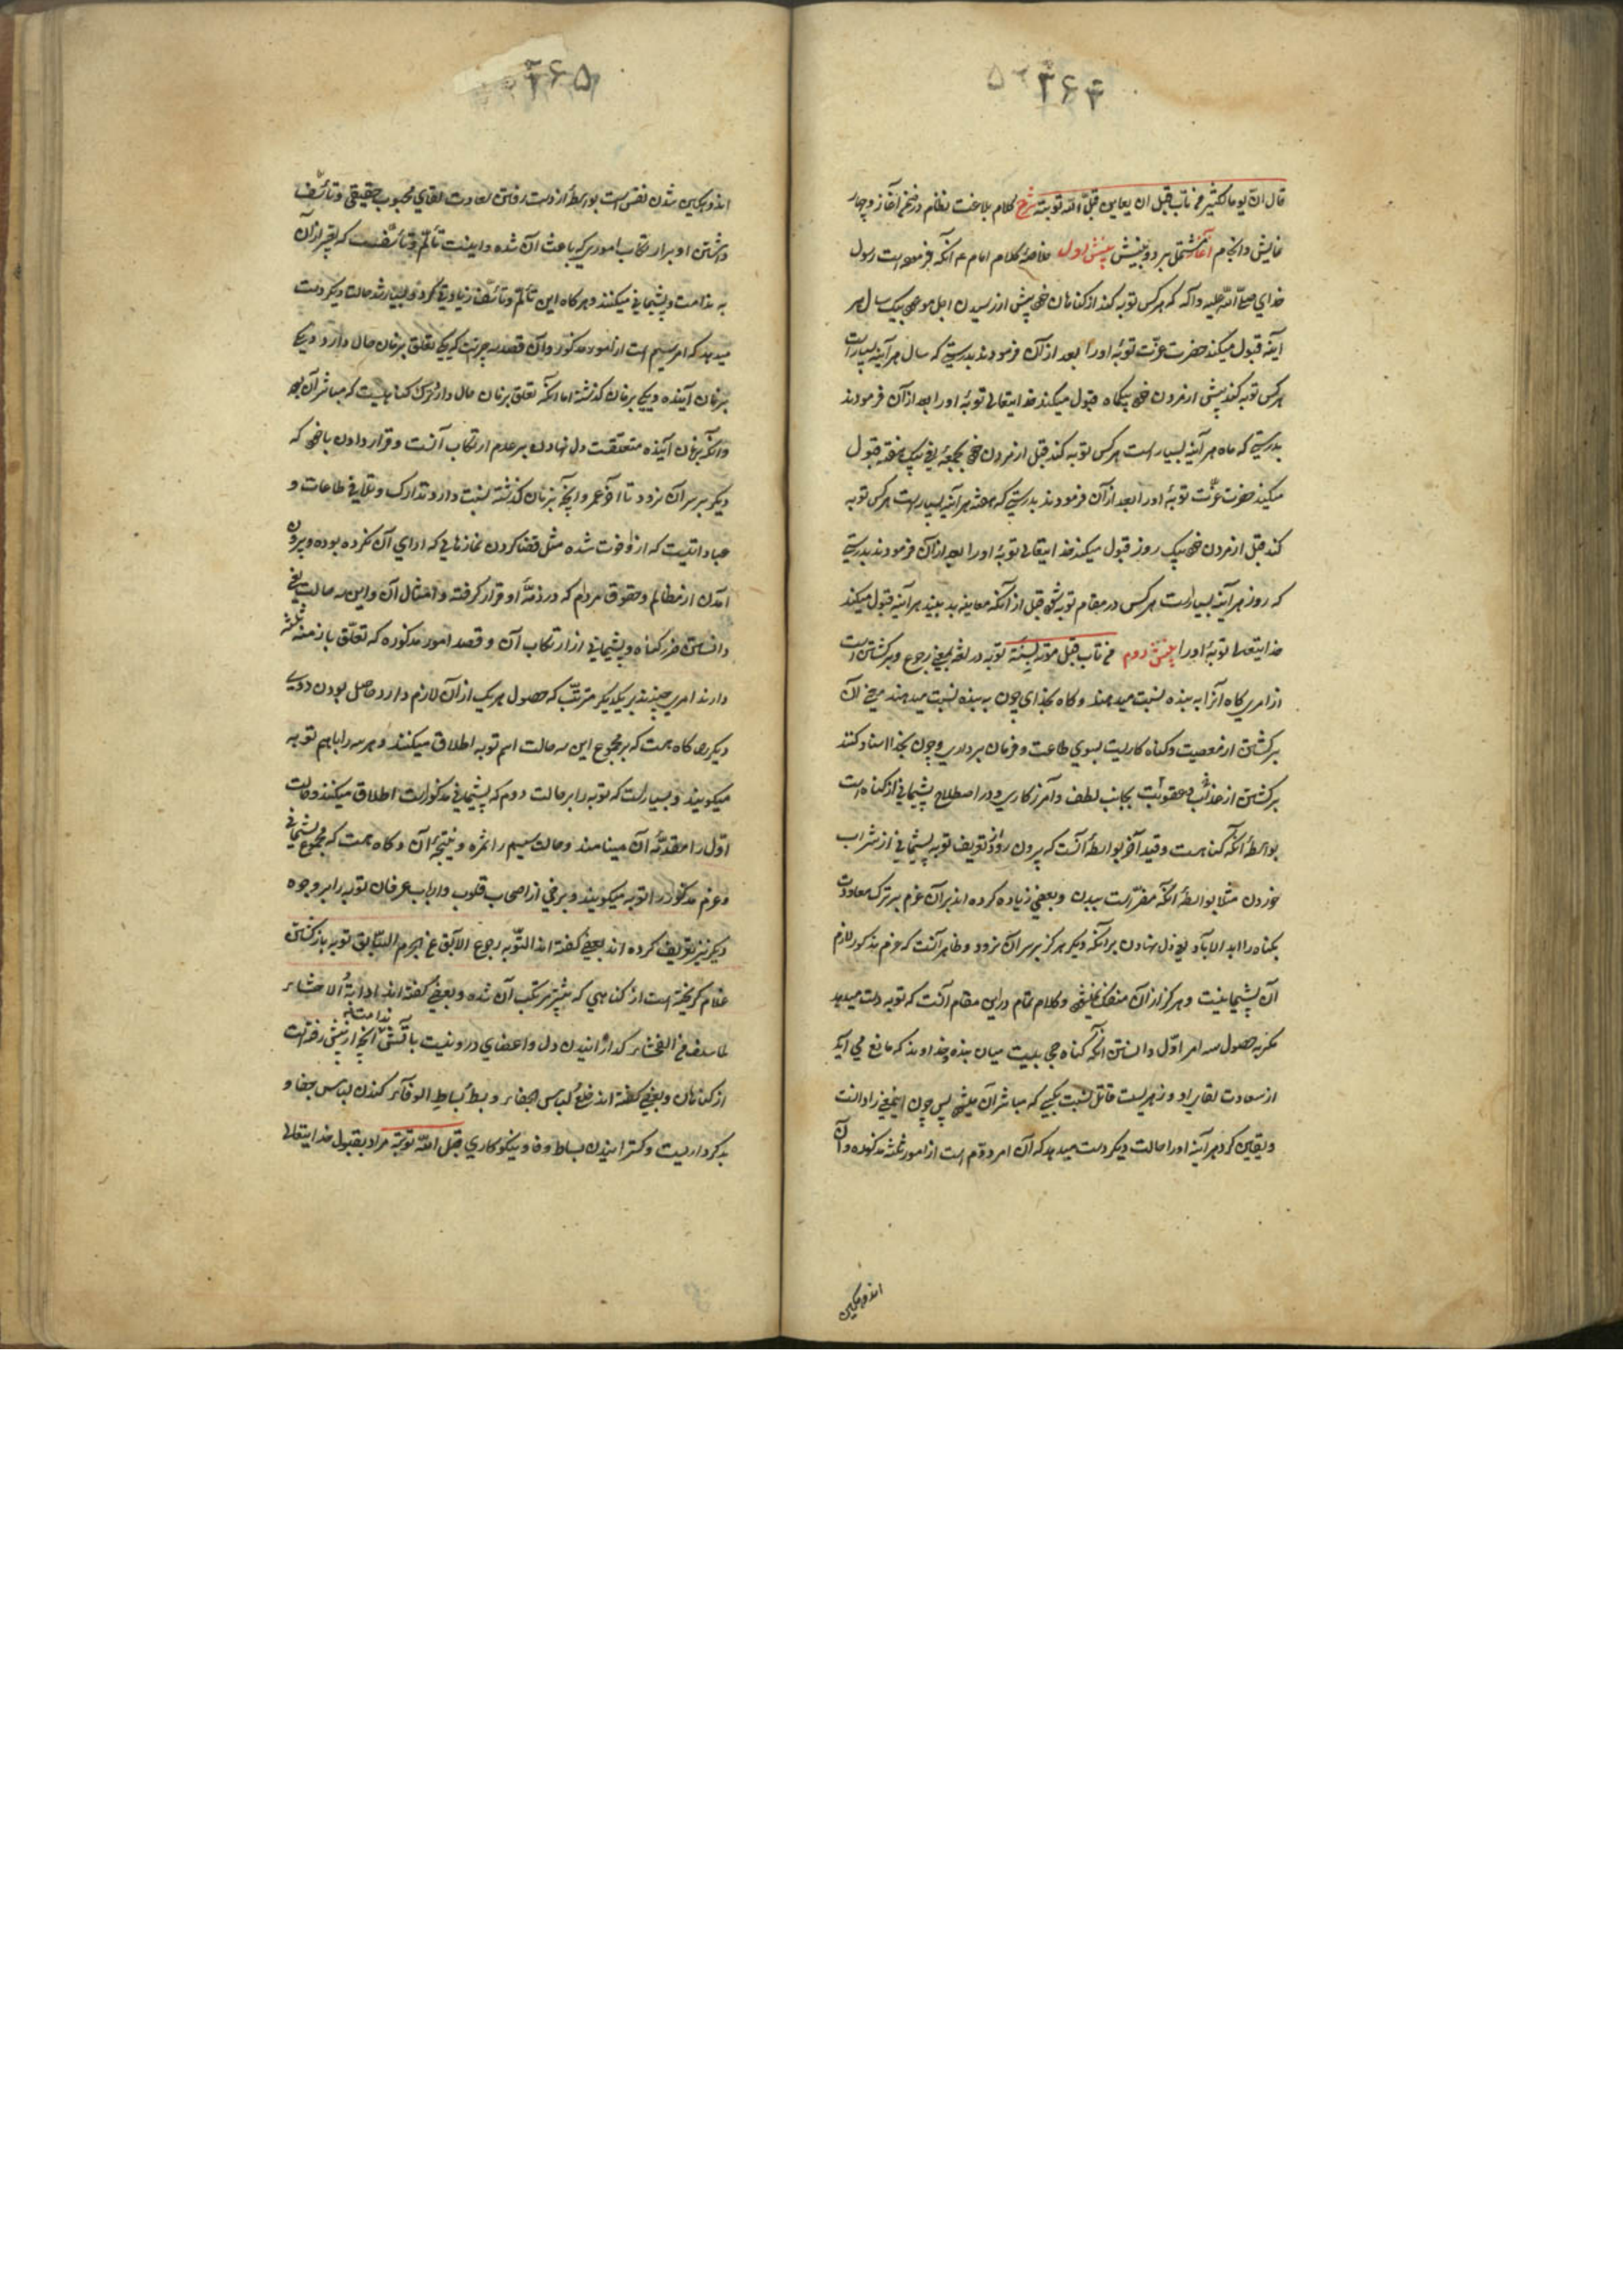 ۳۶۴
قال ان یوما لکثیر من تاب قبل ان یعاین قبل الله توبته شرح کلام بلاغت نظام در ضمن آغاز و چهار
نمایش و انجام آغاز مشتمل بر دو بینش بینش اول خلاصه کلام امام ع آنکه فرموده است رسول
خدای صلی الله علیه وآله که هر کس توبه کند از کناهان خود پیش از رسیدن اجل موعود بیک سال هر
آینه قبول میکند حضرت عزت توبه او را بعد از آن فرمودند بدرستی که سال هر آینه بسیار است
هر کس توبه کند پیش از مردن خود بیکماه قبول میکند خدایتعالی توبه او را بعد از آن فرمودند
بدرستی که ماه هر آینه بسیار است هر کس توبه کند قبل از مردن خود بجمعه یعنی بیک هفته قبول
میکند حضرت عزت توبه او را بعد از آن فرمودند بدرستی که هفته هر آینه بسیار است هر کس توبه
کند قبل از مردن خود بیک روز قبول میکند خدایتعالی توبه او را بعد از آن فرمودند بدرستی
که روز هر آینه بسیار است هر کس در مقام توبه شود قبل از آنکه معاینه بد بیند هر آینه قبول میکند
خدایتعالی توبه او را بینش دوم من تاب قبل موته بسنة توبه در لغة بمعنی رجوع و برکشتن است
از امری کاه آنرا به بنده نسبت میدهند و کاه بخدای چون به بنده نسبت میدهند مراد از آن
برکشتن از معصیت و کناه کاریست بسوی طاعت و فرمان برداری و چون بخدا اسناد کنند
برکشتن از عذاب و عقوبت بجانب لطف و آمرزکاری و در اصطلاح پشیمانی از کناه است
بواسطه آنکه کناهست و قید آخر بواسطه آنست که بیرون رود از تعریف توبه پشیمانی از شراب
خوردن مثلا بواسطه آنکه مضر است ببدن و بعضی زیاده کرده اند بر آن عزم بر ترک معاودت
بکناه را ابد الاباد یعنی دل نهادن بر آنکه دیگر هرکز بر سر آن نرود و ظاهر آنست که عزم مذکور لازم
آن پشیمانیست و هرکز از آن منفک نمیشود و کلام تمام در این مقام آنست که توبه دست میدهد
مکر به حصول سه امر اول دانستن آنکه کناه حجابیست میان بنده و خداوند که مانع می آید
از سعادت لقای او و زهریست قاتل نسبت بکسی که مباشر آن میشود پس چون اینمعنی را دانست
و یقین کرد هر آینه او را حالت دیگر دست میدهد که آن امر دوم است از امور ثلثه مذکوره و آن
اندوهکین
۳۶۵
اندوهکین شدن نفس است بواسطه از دست رفتن سعادت لقای محبوب حقیقی و تأسف
داشتن او بر ارتکاب اموری که باعث آن شده و اینست تألم و تأسفست که تعبیر از آن
به ندامت و پشیمانی میکنند و هر کاه این تألم و تأسف زیادتی کرد و بسیار شد حالت دیگر دست
میدهد که امر سیم است از امور مذکور و آن قصد سه چیزیست که یکی تعلق بزمان حال دارد و یکی
بزمان آینده و یکی بزمان کذشته اما آنکه تعلق بزمان حال دارد ترک کناهیست که مباشر آن بود
و آنکه بزمان آینده متعلقست دل نهادن بر عدم ارتکاب آنست و قرار دادن با خود که
دیگر بر سر آن نرود تا آخر عمر و آنچه بزمان کذشته نسبت دارد تدارک و تلافی طاعات و
عباداتیست که از او فوت شده مثل قضا کردن نمازهایی که ادای آن نکرده بوده و بیرون
آمدن از مظالم و حقوق مردم که در ذمه او قرار کرفته و امثال آن و این سه حالت یعنی
دانستن ضرر کناه و پشیمانی از ارتکاب آن و قصد امور مذکوره که تعلق بازمنه ثلثه
دارند امری چندند بر یکدیکر مترتب که حصول هر یک از آن لازم دارد حاصل بودن دویی
دیگر را کاه هست که بر مجموع این سه حالت اسم توبه اطلاق میکنند و هر سه را با هم توبه
میکویند و بسیار است که توبه را بر حالت دوم که پشیمانی مذکور است اطلاق میکنند و حالت
اول را مقدمه آن مینامند و حالت سیم را ثمره و نتیجه آن و کاه هست که مجموع پشیمانی
و عزم مذکور را توبه میکویند و برخی از اصحاب قلوب و ارباب عرفان توبه را بر وجوه
دیگر نیز تعریف کرده اند بعضی کفته اند التوبه رجوع الآبق عن الجرم السابق توبه بازکشتن
غلام کریخته است از کناهی که پیشتر مرتکب آن شده و بعضی کفته اند اذابة الاحشاء
لما سلف من الفحشاء کدازانیدن دل و اعضای درونیست بآتش ندامت به آنچه از پیش رفته است
از کناهان و بعضی کفته اند خلع لباس الجفاء و بسط بساط الوفاء کندن لباس جفا و
بدکرداریست و کسترانیدن بساط وفا و نیکوکاری قبل الله توبته مراد بقبول خدایتعالی